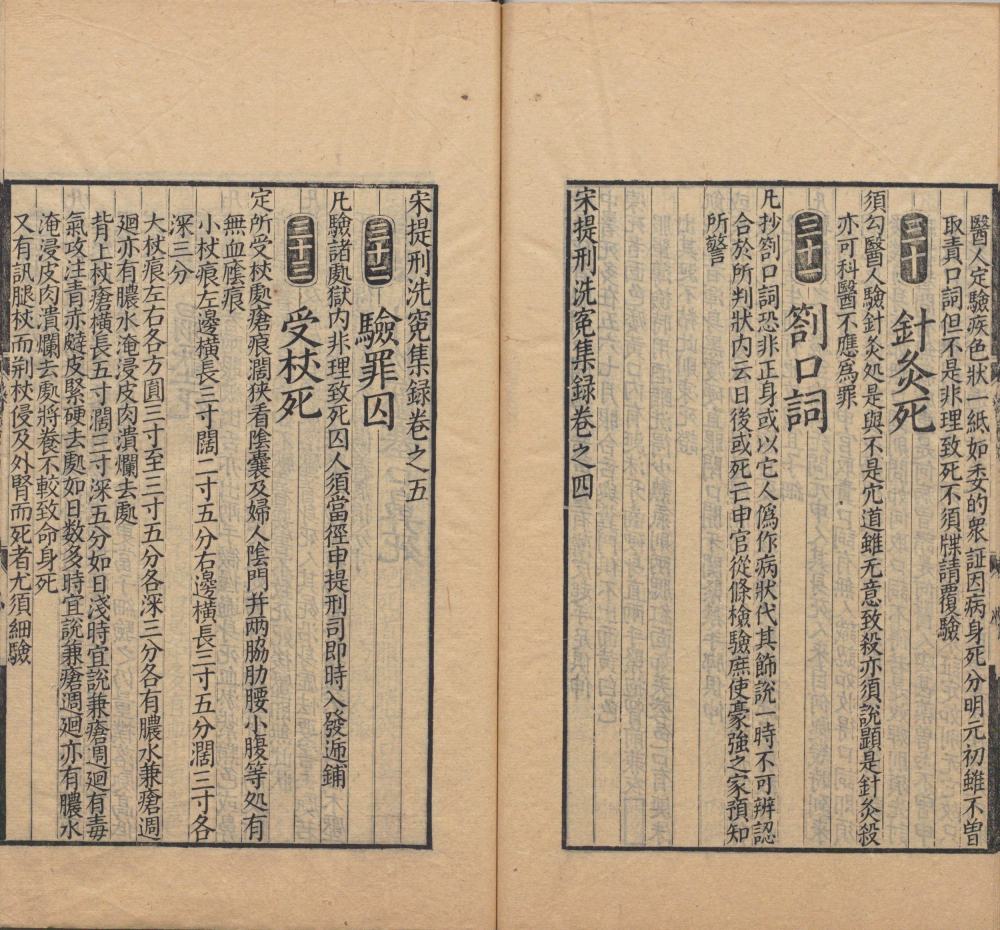 醫人定驗疾色狀一紙如委的衆証因病身死分明元初雖不曾
取責口詞但不是非理致死不須牒請覆驗
三十 針灸死
須勾醫人驗針灸処是與不是穴道雖无意致殺亦須說顕是針灸殺
亦可科醫不應爲罪
三十一 劄口詞
凡抄劄口詞恐非正身或以它人僞作病狀代其飾說一時不可辨認
合於所判狀内云日後或死亡申官從條檢驗庶使豪強之家預知
所警
宋提刑洗寃集録卷之四
宋提刑洗寃集録卷之五
三十二 驗罪囚
凡驗諸處獄内非理致死囚人須當徑申提刑司即時入發逓鋪
三十三 受杖死
定所受杖處瘡痕濶狹看陰囊及婦人陰門并两脇肋腰小腹等処有
無血䕃痕
小杖痕左邊横長三寸闊二寸五分右邊横長三寸五分濶三寸各
深三分
大杖痕左右各方圓三寸至三寸五分各深三分各有膿水兼瘡週
廻亦有膿水淹浸皮肉潰爛去處
背上杖瘡横長五寸濶三寸深五分如日淺時宜說兼瘡週廻有毒
氣攻注青赤䐕皮緊硬去處如日数多時宜說兼瘡週廻亦有膿水
淹浸皮肉潰爛去處將養不較致命身死
又有訊腿杖而荆杖侵及外腎而死者尤須細驗